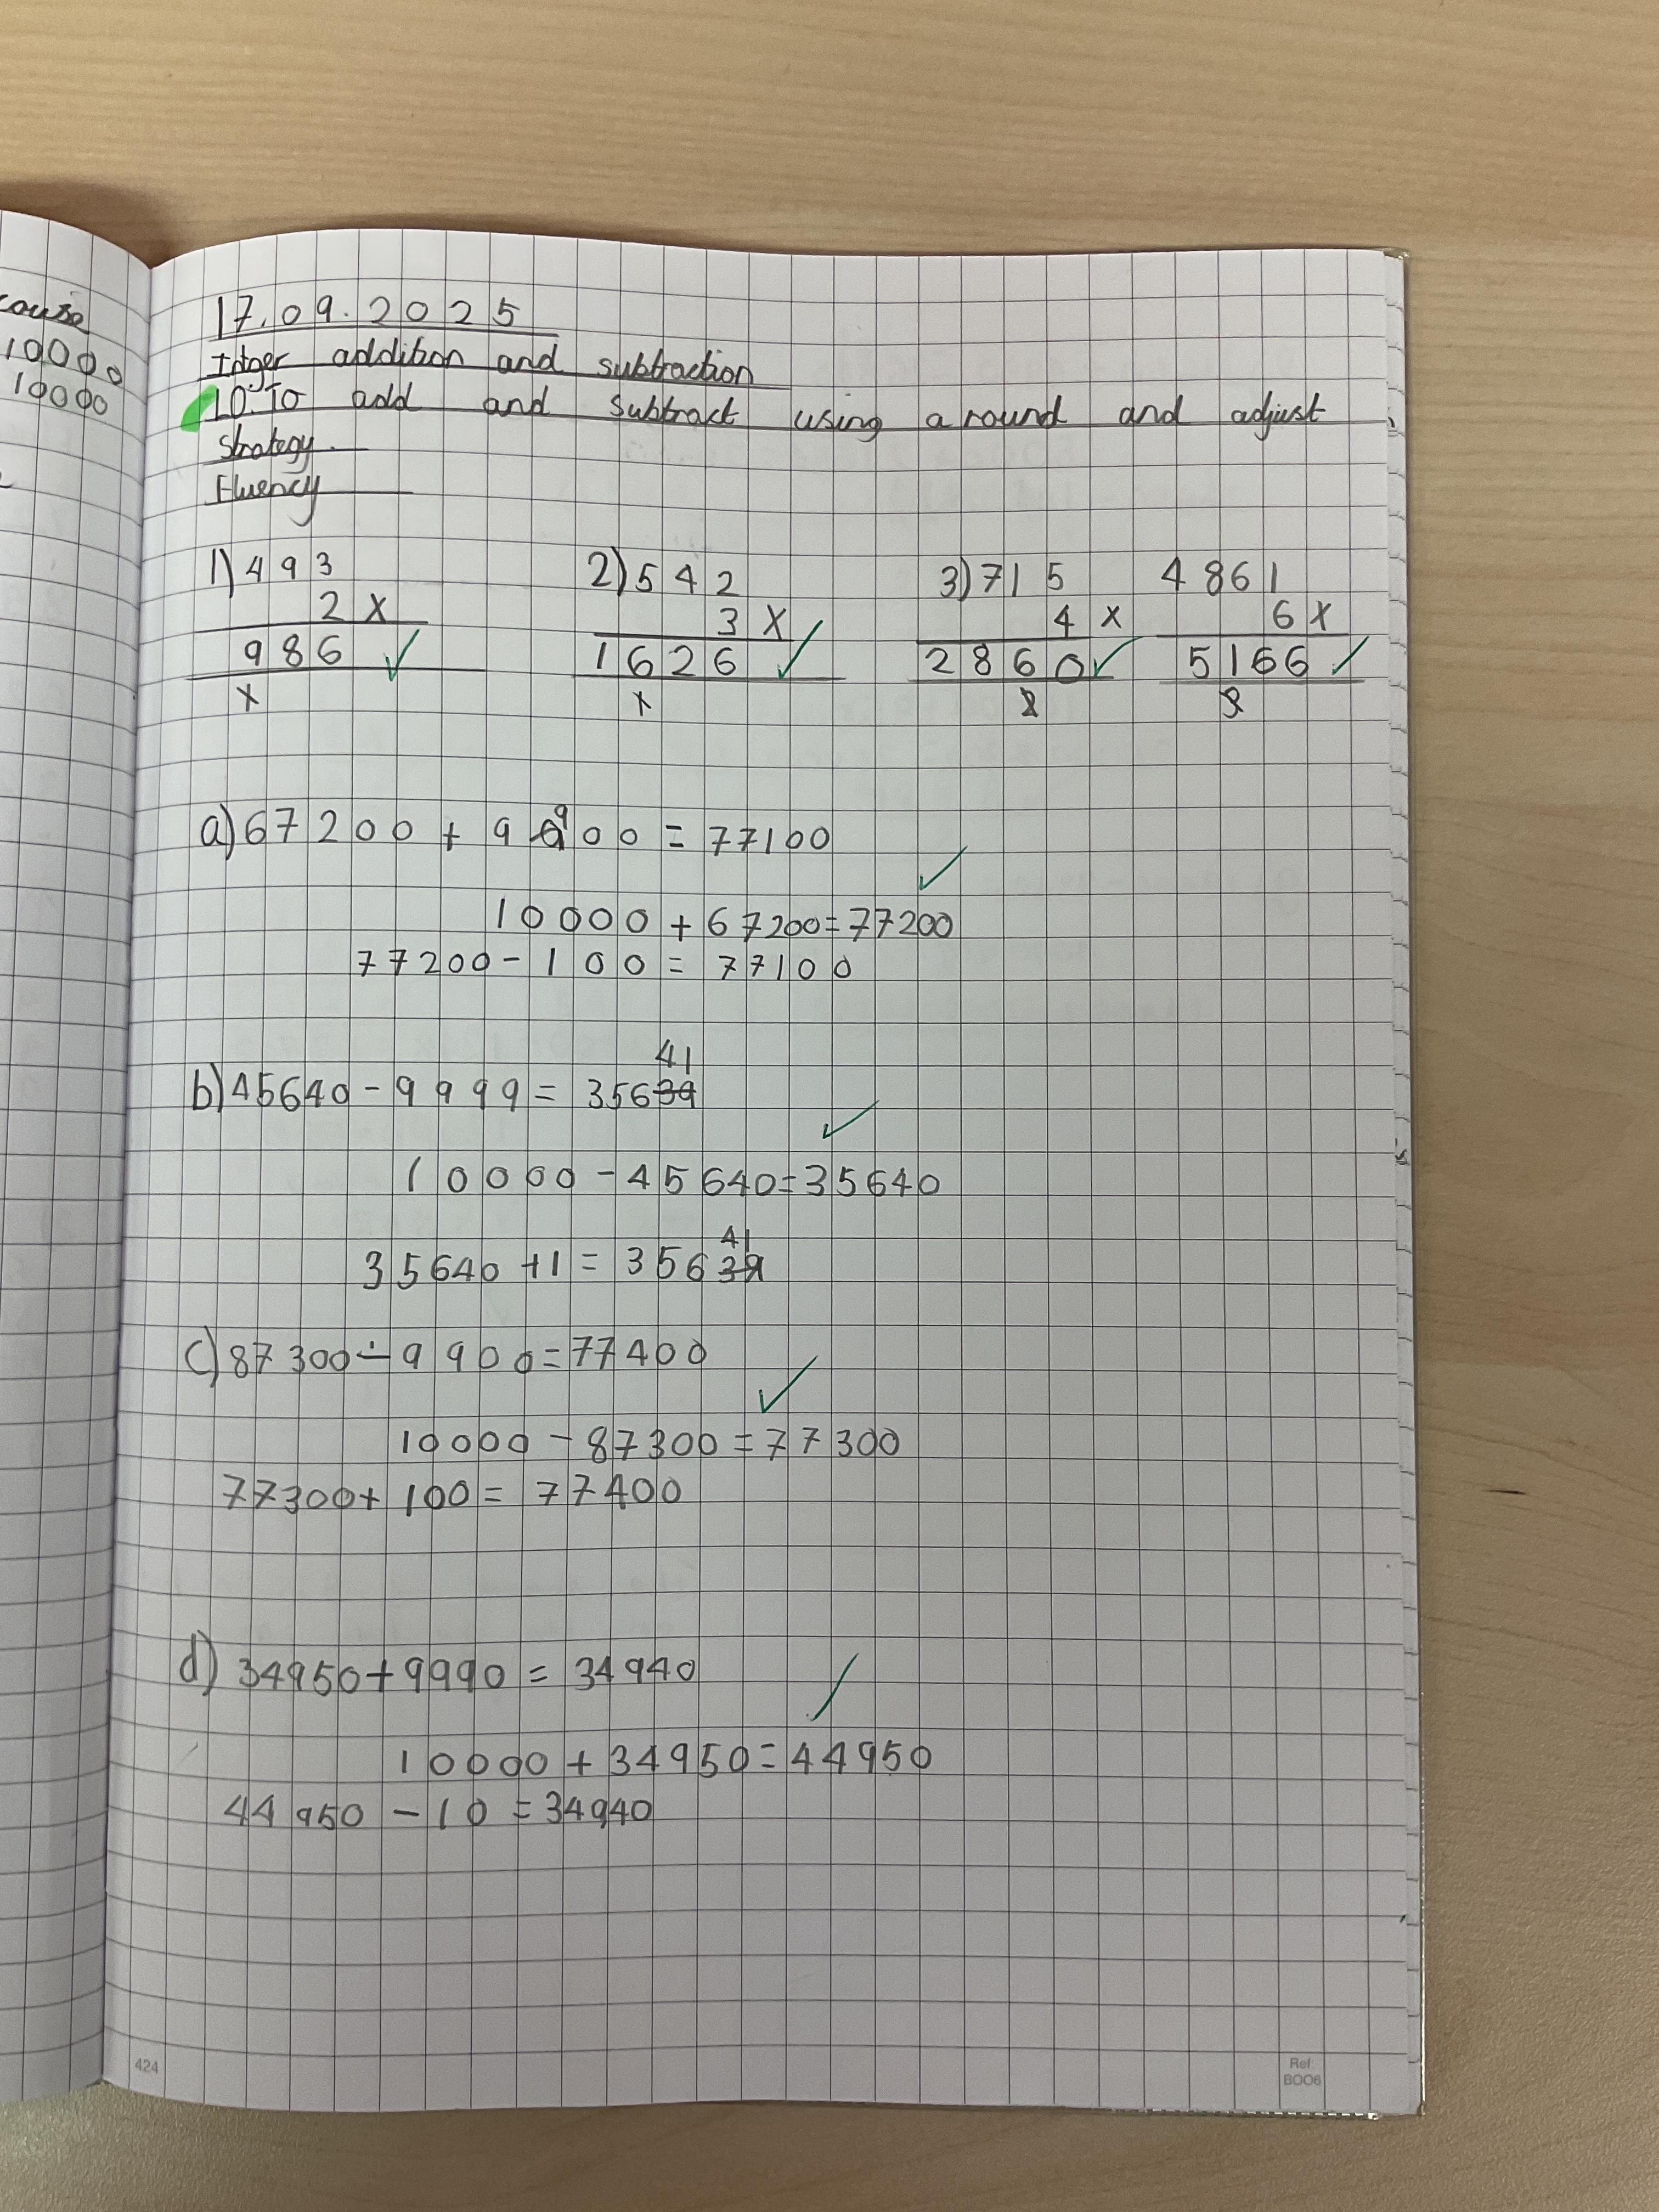 couise
10000
10000
17.09.2025
Intger addition and subtraction
LO: To add and subtract using a round and adjust
strategy.
Fluency
1) 493 2) 542 3) 715 4 861
2 X 3 X 4 x 6 x
986 ✓ 1626 ✓ 2860 ✓ 5166 ✓
1 1 2 3
a) 67200 + 9900 = 77100
✓
10000 + 67200 = 77200
77200 - 100 = 77100
41
b) 45640 - 9999 = 35639
✓
10000 - 45640 = 35640
41
35640 + 1 = 35639
c) 87300 - 9900 = 77400
✓
10000 - 87300 = 77300
77300 + 100 = 77400
d) 34950 + 9990 = 34940
✓
10000 + 34950 = 44950
44950 - 10 = 34940
424
Ref:
BOO6